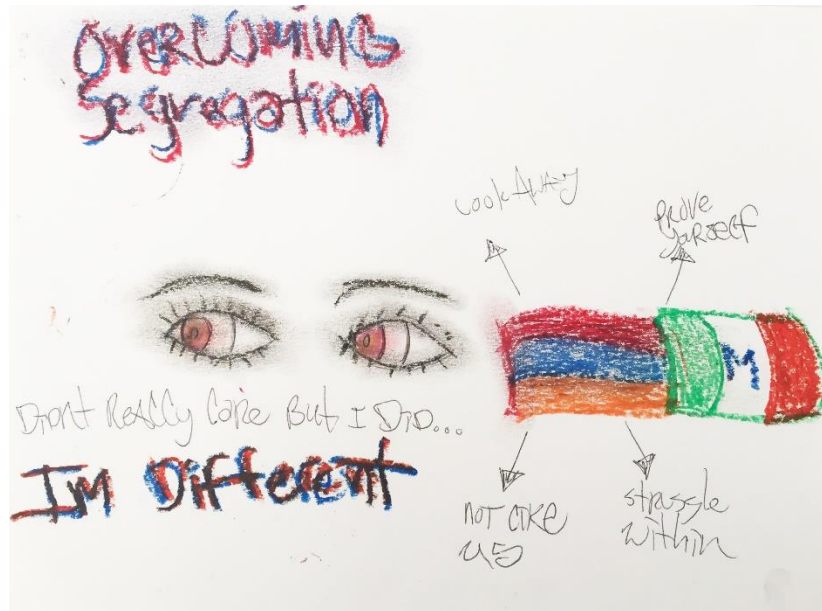 OVERCOMING
Segregation
Look Away
PROVE
YOURSELF
DIDNT REALLY CARE BUT I DID...
IM Different
M
NOT LIKE
US
struggle
within